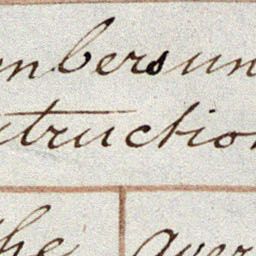 mbers un
truction
the aver